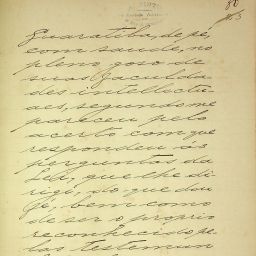 Guaratiba, de pé,
com saude, no
pleno goso de
suas faculda-
des intellectu-
aes, segundo me
pareceu pelo
acerto com que
respondeu ás
perguntas da
Lei, que lhe di-
rigi, do que dou
fé, bem como
de ser o proprio
reconhecido pe-
las testemun